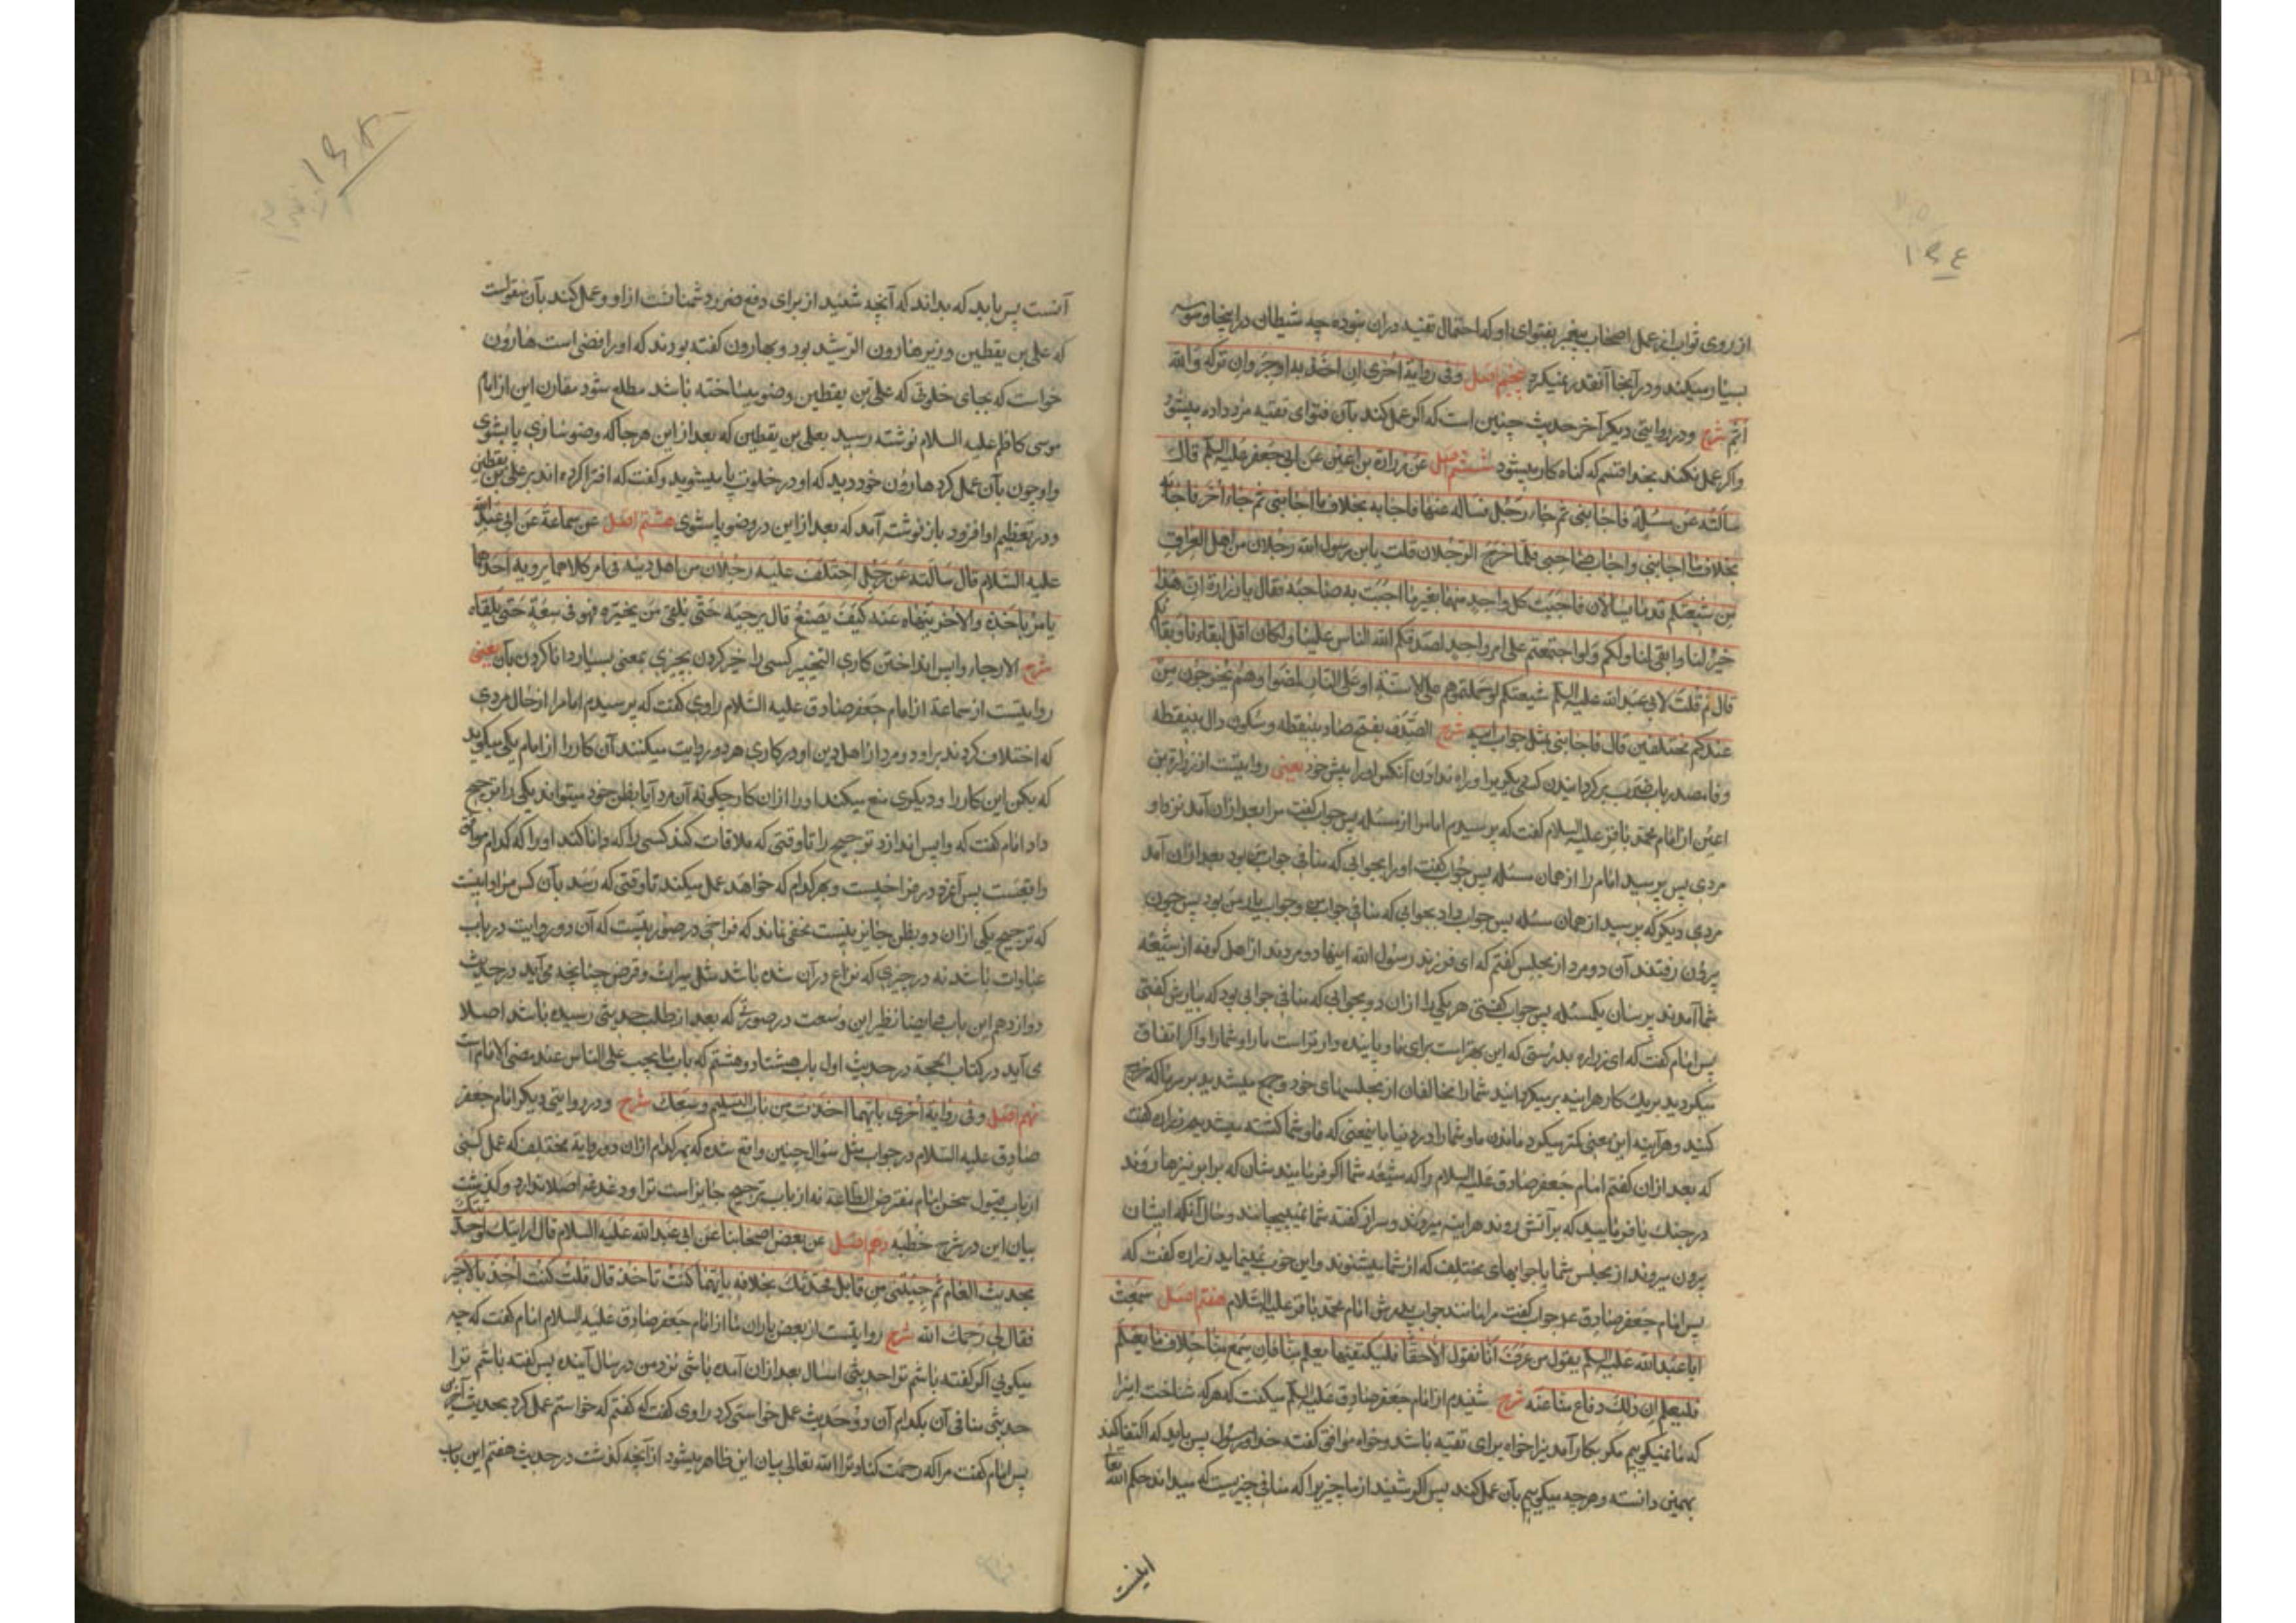 ۱۶۴
از روی ثواب از عمل اصحاب پیغمبر بفتوای او که احتمال تقیه در آن نبوده چه شیطان در اینجا وسوسه
بسیار میکند و در آنجا آنقدر نمیکرد پنجم اصل وفی روایة اخری ان اخذ به اوجر وان ترکه والله
اثم شرح و در روایتی دیگر آخر حدیث چنین است که اگر عمل کند بآن فتوای تقیه مزد داده میشود
و اگر عمل نکند بخدا قسم که گناه کار میشود ششم اصل عن زرارة بن اعین عن ابی جعفر علیه السلم قال
سألته عن مسئلة فاجابنی ثم جاء رجل فسأله عنها فاجابه بخلاف ما اجابنی ثم جاء اخر فاجابه
بخلاف ما اجابنی واجاب صاحبی فلما خرج الرجلان قلت یابن رسول الله رجلان من اهل العراق
من شیعتکم قدما یسالان فاجبت کل واحد منهما بغیر ما اجبت به صاحبه فقال یا زرارة ان هذا
خیر لنا وابقی لنا ولکم ولو اجتمعتم علی امر واحد لصدقکم الله الناس علینا ولکان اقل لبقاءنا وبقائکم
قال ثم قلت لابی عبد الله علیه السلم شیعتکم لو حملتموهم علی الاسنة او علی النار لمضوا وهم یخرجون من
عندکم مختلفین قال فاجابنی بمثل جواب ابیه شرح الصدف بفتح صاد بینقطه و سکون دال بینقطه
و فا مصدر باب ضرب برگردانیدن کسی دیگریرا و راه ندادن آنکس اورا پیش خود یعنی روایتست از زرارة بن
اعین از امام محمد باقر علیه السلام گفت که پرسیدم امام را از مسئله پس جواب گفت مرا بعد ازان آمد نزد او
مردی پس پرسید امام را از همان مسئله پس جواب گفت اورا بجوابی که منافی جواب من بود بعد ازان آمد
مردی دیگر که پرسید از همان مسئله پس جواب داد بجوابی که منافی جواب من و جواب یار من بود پس چون
بیرون رفتند آن دو مرد از مجلس گفتم که ای فرزند رسول الله اینها دو مردند از اهل کوفه از شیعه
شما آمدند پرسان یکمسئله پس جواب گفتی هر یکی را ازان دو بجوابی که منافی جوابی بود که بیارش گفتی
پس امام گفت که ای زراره بدرستی که این بهتر است برای ما و پاینده دارتر است ما را و شما را و اگر اتفاق
میکردید بر یک کار هراینه برمیگردانید شما را مخالفان از مجلسهای خود و جمع میشدید بر سر ما که خروج
کنید و هرآینه این معنی کمتر میکرد ماندن ما و شما را در دنیا باینمعنی که ما و شما کشته میشدیم زراره گفت
که بعد ازان گفتم امام جعفر صادق علیه السلام را که شیعه شما اگر فرمایید شان که برابر نیزها روند
در جنگ یا فرمایید که بر آتش روند هراینه میروند و سر از گفته شما نمیپیچانند و حال آنکه ایشان
بیرون میروند از مجلس شما با جوابهای مختلف که از شما میشنوند و این خوب نمینماید زراره گفت که
پس امام جعفر صادق ع جواب گفت مرا مانند جواب پدرش امام محمد باقر علیه السلام هفتم اصل سمعت
ابا عبد الله علیه السلم یقول من عرف انا نقول الا حقا فلیکتف بما یعلم منا فان سمع منا خلاف ما یعلم
فلیعلم ان ذلک دفاع منا عنه شرح شنیدم از امام جعفر صادق علیه السلم میگفت که هر که شناخت اینرا
که ما نمیگوییم مگر بکار آمد نیرا خواه برای تقیه باشد و خواه موافق گفته خدا و رسول پس باید که اکتفا کند
بهمین دانسته و هرچه میگوییم بآن عمل کند پس اگر شنید از ما چیزیرا که منافی چیزیست که میداند حکم الله تعالی
اینست
۱۶۵
آنست پس باید که بداند که آنچه شنید از برای دفع ضرر دشمنانست ازو و عمل کند بآن منقولست
که علی بن یقطین وزیر هارون الرشید بود و بهارون گفته بودند که او رافضی است هارون
خواست که بجای خلوتی که علی بن یقطین وضو میساخته باشد مطلع شود مقارن این از امام
موسی کاظم علیه السلام نوشته رسید بعلی بن یقطین که بعد از این هرجا که وضو سازی پا بشوی
و او چون بآن عمل کرد هارون خود دید که او در خلوت پا میشوید و گفت که افترا کرده اند بر علی بن یقطین
و در تعظیم او افزود باز نوشته آمد که بعد از این در وضو پا مشوی هشتم اصل عن سماعة عن ابی عبد الله
علیه السلام قال سألته عن رجل اختلف علیه رجلان من اهل دینه فی امر کلاهما یرویه احدهما
یامر باخذه والاخر ینهاه عنه کیف یصنع قال یرجئه حتی یلقی من یخبره فهو فی سعة حتی یلقاه
شرح الارجاء واپس انداختن کاری التخبیر کسی را خبر کردن بچیزی بمعنی بسیار دانا کردن بآن یعنی
روایتست از سماعة از امام جعفر صادق علیه السلام راوی گفت که پرسیدم امام را از حال مردی
که اختلاف کردند بر او دو مرد از اهل دین او در کاری هر دو روایت میکنند آن کار را از امام یکی میگوید
که بکن این کار را و دیگری منع میکند اورا ازان کار چگونه آن مرد آیا بظن خود میتواند یکی را ترجیح
داد امام گفت که واپس اندازد ترجیح را تا وقتی که ملاقات کند کسی را که دانا کند اورا که کدام موافق
واقعست پس آنمرد در فراخیست و بهر کدام که خواهد عمل میکند تا وقتی که رسد بآن کس مراد اینست
که ترجیح یکی ازان دو بظن جایز نیست مخفی نماند که فراخی در صورتیست که آن دو روایت در باب
عبادات باشد نه در چیزی که نزاع در آن شده باشد مثل میراث و قرض چنانچه می آید در حدیث
دوازدهم این باب و ایضا نظیر این وسعت در صورتی که بعد از طلب حدیثی رسیده باشد اصلا
می آید در کتاب الحجة در حدیث اول باب هشتاد و هشتم که باب ما یجب علی الناس عند مضی الامام است
نهم اصل وفی روایة اخری بایهما اخذت من باب التسلیم وسعک شرح و در روایتی دیگر امام جعفر
صادق علیه السلام در جواب مثل سؤال چنین واقع شده که بهر کدام ازان دو روایة مختلف که عمل کنی
از باب قبول سخن امام مفترض الطاعة نه از باب ترجیح جایز است ترا و دغدغه اصلا ندارد و گذشت
بیان این در شرح خطبه دهم اصل عن بعض اصحابنا عن ابی عبد الله علیه السلام قال ارایتک لو حدثتک
بحدیث العام ثم جئتنی من قابل فحدثتک بخلافه بایهما کنت تاخذ قال قلت کنت اخذ بالاخیر
فقال لی رحمک الله شرح روایتست از بعض یاران ما از امام جعفر صادق علیه السلام امام گفت که چه
میگویی اگر گفته باشم ترا حدیثی امسال بعد ازان آمده باشی نزد من در سال آینده پس گفته باشم ترا
حدیثی منافی آن بکدام آن دو حدیث عمل خواستی کرد راوی گفت که گفتم که خواستم عمل کرد بحدیث آخرین
پس امام گفت مرا که رحمت کناد ترا الله تعالی بیان این ظاهر میشود از آنچه گذشت در حدیث هفتم این باب